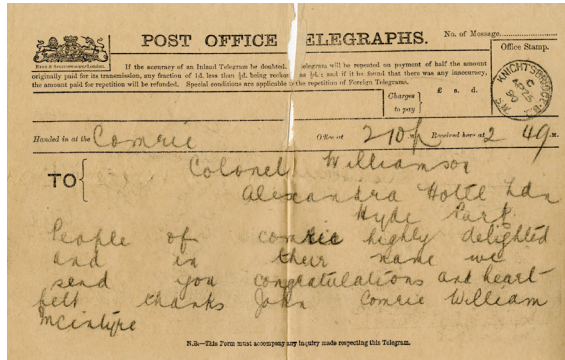 POST OFFICE TELEGRAPHS.
No. of Message
Office Stamp.
If the accuracy of an Inland Telegram be doubted, telegram will be repeated on payment of half the amount
originally paid for its transmission, any fraction of 1d. less than ½d. being reckoned as ½d.; and if it be found that there was any inaccuracy,
the amount paid for repetition will be refunded. Special conditions are applicable to the repetition of Foreign Telegrams.
Charges to pay
£ s. d.
KNIGHTSBRIDGE B.O.
S.W.
Handed in at the Comrie Office at 2 10 P.M. Received here at 2 49 M.
TO { Colonel Williamson
Alexandra Hotel Ldn
Hyde Park
People of comrie highly delighted
and in their name we
send you congratulations and heart-
felt thanks John Comrie William
McIntyre
N.B.—This Form must accompany any inquiry made respecting this Telegram.